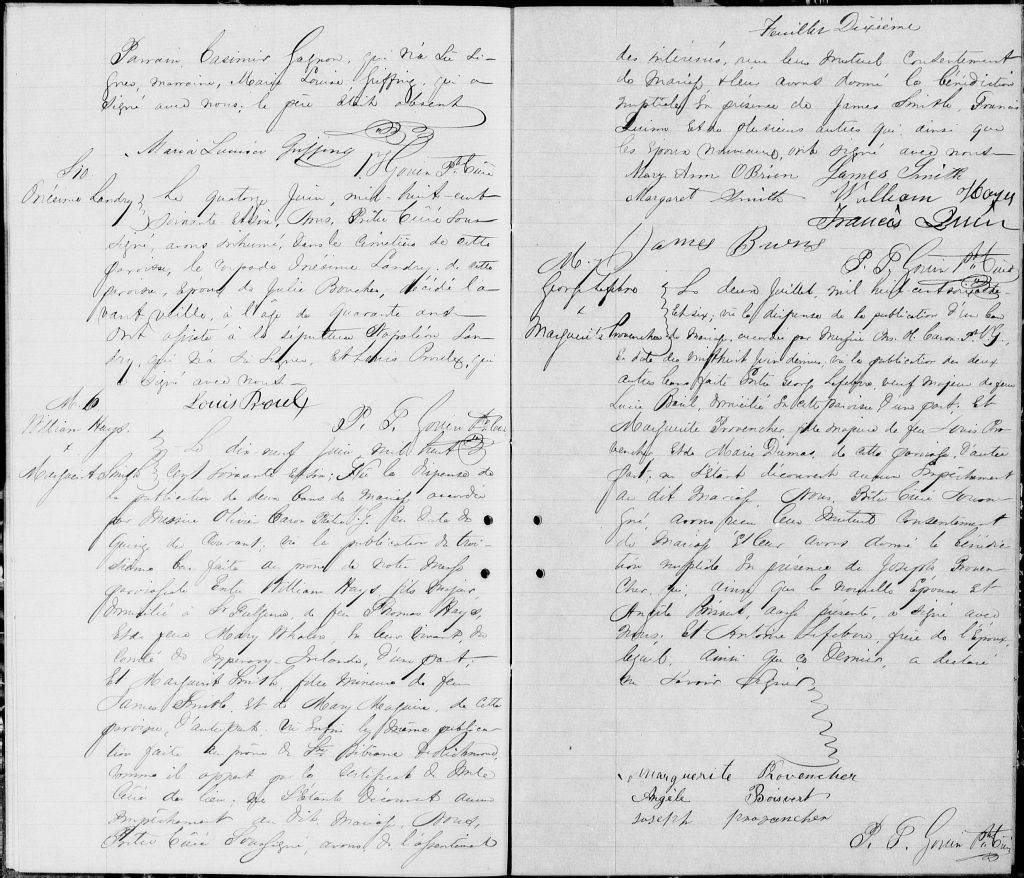 Parrain, Casimir Gagnon, qui n'a su si-
gner, marraine, Marie Louise Griffing, qui a
signé avec nous; le père était absent
Maria Louisa Griffing
P. P. Gouin Ptre Curé
S.
Onésime Landry
Le quatorze Juin, mil-huit-cent
soixante et six, Nous, Prêtre Curé Sous-
signé, avons inhumé, dans le cimetière de cette
paroisse, le corps de Onésime Landry, de cette
paroisse, Epoux de Julie Boucher, décédé l'a-
vant veille, à l'âge de quarante ans
Ont assisté à la sépulture Napoléon Lan-
dry, qui n'a su signer, et Louis Proulx, qui
a signé avec nous
Louis Proulx
P. P. Gouin Ptre Curé
M. 6
William Hays
&
Marguerit Smith
Le dix neuf Juin, mil huit
Cent soixante et six; Vu la dispense de
la publication de deux bans de mariage accordée
par Messire Olivier Caron Prêtre V. G. en date du
quinze du courant; vu la publication du troi-
sième ban faite au prône de notre Messe
paroissiale Entre William Hays fils majeur
domicilié à St Fulgence de feu Thomas Hays,
et de feue Mary Whalen en leur vivant, du
Comté de Tipperary Irlande, d'une part;
Et Marguerit Smith, fille mineure de feu
James Smith, et de Mary Maguire, de cette
paroisse, d'autre part. Vu enfin la même publica-
tion faite au prône de Ste Bibiane de Richmond,
comme il appert par le certificat de
Curé du lieu; ne s'étant découvert aucun
Empêchement au dit mariage, Nous,
Prêtre Curé Soussigné, avons, de l'assentiment
Feuillet Dixième
des intéressés, reçu leur mutuel consentement
de mariage, & leur avons donné la bénédiction
nuptiale en présence de James Smith, Francis
Quinn et de plusieurs autres qui, ainsi que
les époux nouveaux, ont signé avec nous
Mary Ann O'Brien James Smith
Margaret Smith William Hayes
Francis Quinn
James Burns
P. P. Gouin Ptre Curé
M. 7
George Lefebvre
&
Marguerite Provencher
Le deux Juillet, mil huit cent soixante
et six; vu la dispense de la publication d'un ban
de mariage, accordée par Messire Chs. O. Caron, Ptre V. G.,
en date des vingt huit Juin dernier, vu la publication des deux
autres bans faite Entre George Lefebvre, veuf majeur de feue
Lucie Paul, domicilié en cette paroisse d'une part. Et
Marguerite Provencher fille majeure de feu Louis Pro-
vencher, et de Marie Dumas, de cette paroisse, d'autre
part; ne s'étant découvert aucun Empêchement
au dit mariage Nous, Prêtre Curé Soussi-
gné, avons reçu leur mutuel consentement
de mariage et leur avons donné la bénédic-
tion nuptiale en présence de Joseph Proven-
cher, qui, ainsi que la nouvelle Épouse et
Angèle Boisvert, aussi présente, a signé avec
Nous; Et Antoine Lefebvre, frère de l'Epoux,
lequel, ainsi que ce dernier, a déclaré
ne savoir signer
Marguerite Provencher
Angèle Boisvert
Joseph provancher
P. P. Gouin Ptre Curé